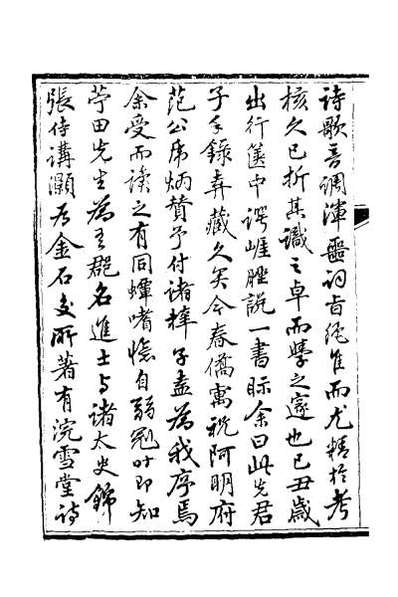 詩歌音調渾噩詞旨純雅而尤精於考
核久已折其識之卓而學之邃也己丑歲
出行篋中諤崖脞說一書眎余曰此先君
子手錄弆藏久矣今春僑寓稅阿明府
范公席炳贊予付諸梓子盍為我序焉
余受而讀之有同蟫嗜憶自弱冠時即知
苧田先生為吾郡名進士与諸太史錦
張侍講灝為金石交所著有浣雪堂詩